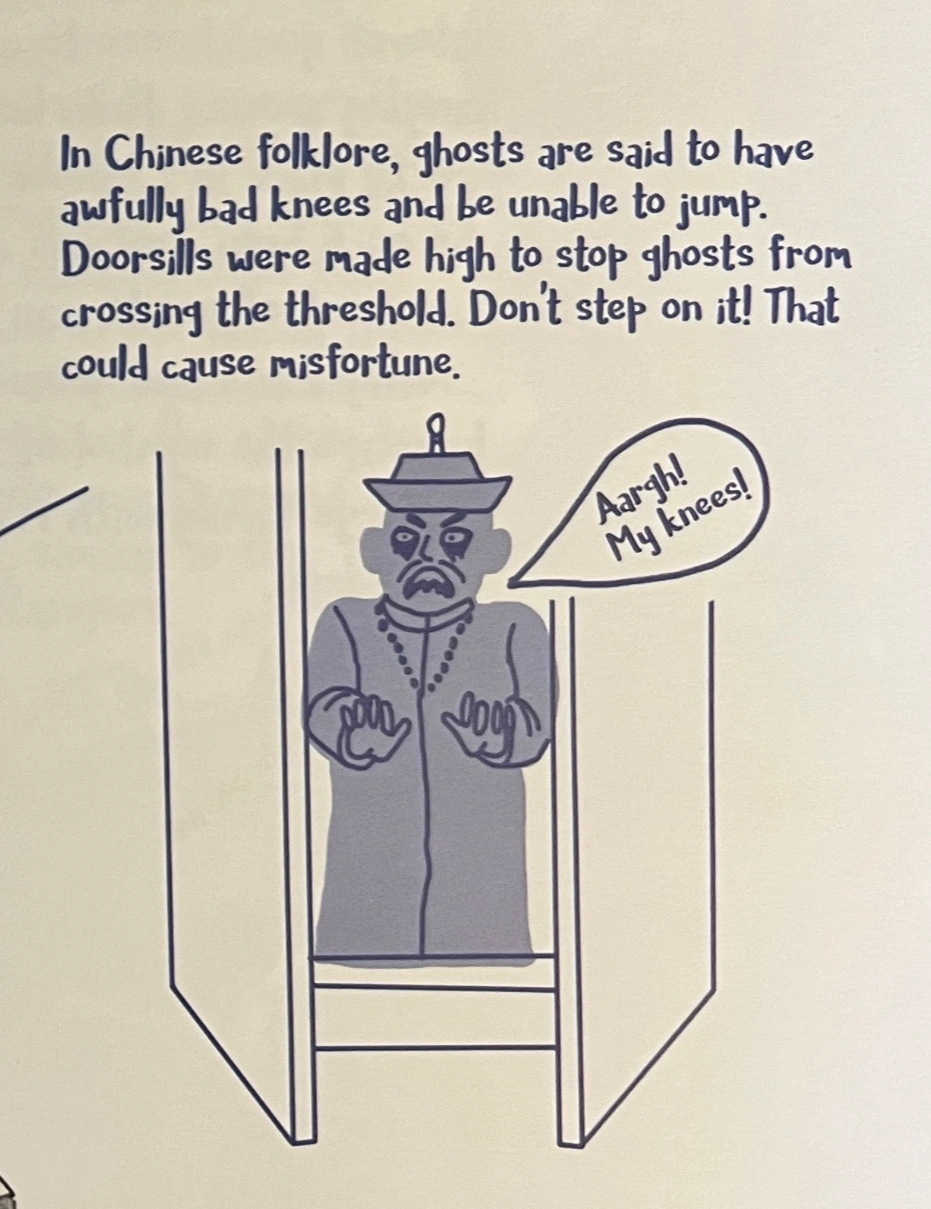 In Chinese folklore, ghosts are said to have
awfully bad knees and be unable to jump.
Doorsills were made high to stop ghosts from
crossing the threshold. Don't step on it! That
could cause misfortune.
Aargh!
My knees!